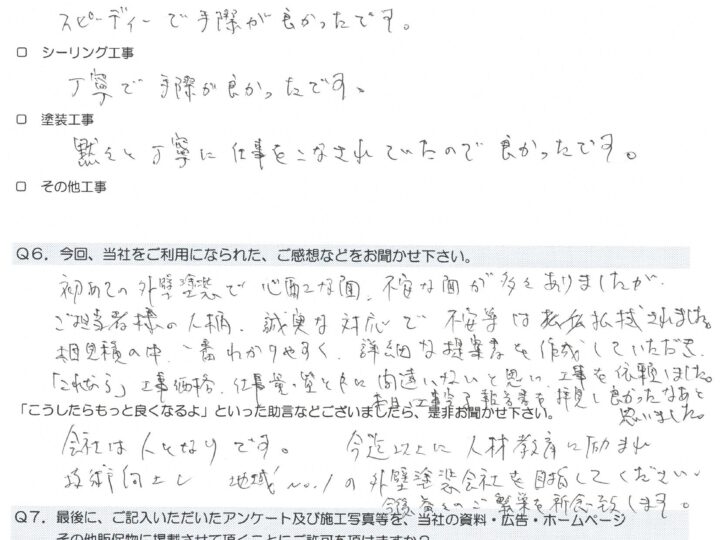 スピーディーで手際が良かったです。
□ シーリング工事
丁寧で手際が良かったです。
□ 塗装工事
黙々と丁寧に仕事をこなされていたので良かったです。
□ その他工事
Q6．今回、当社をご利用になられた、ご感想などをお聞かせ下さい。
初めての外壁塗装で心配な面、不安な面が多くありましたが、
ご担当者様の人柄、誠実な対応で不安等は払拭されました。
相見積の中、一番わかりやすく、詳細な提案書を作成していただき、
「これなら」工事価格、仕事量・質ともに間違いないと思い、工事を依頼しました。
本日、工事完了報告書を拝見し良かったなあと
思いました。
「こうしたらもっと良くなるよ」といった助言などございましたら、是非お聞かせ下さい。
会社は人となりです。 今迄以上に人材教育に励まれ
技術向上し 地域No.1の外壁塗装会社を目指してください。
今後、益々のご繁栄を祈念致します。
Q7．最後に、ご記入いただいたアンケート及び施工写真等を、当社の資料・広告・ホームページ
その他販促物に掲載させて頂くことにご許可を頂けますか？